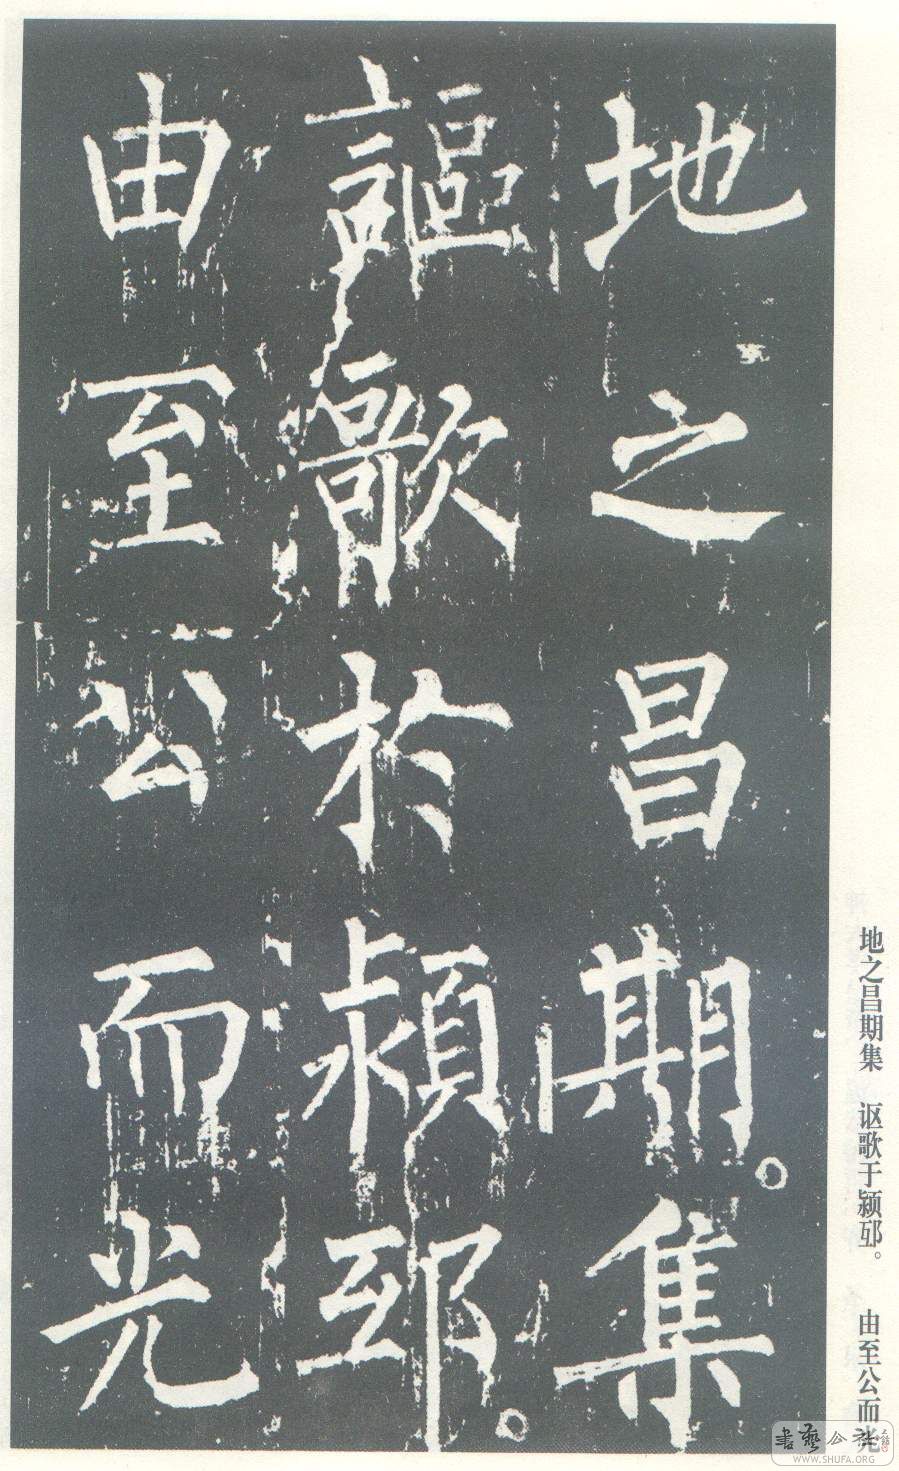 地之昌期集
謳歌於潁邳
由至公而光
地之昌期集 讴歌于颍邳。 由至公而光
書藝公社
WWW.SHUFA.ORG